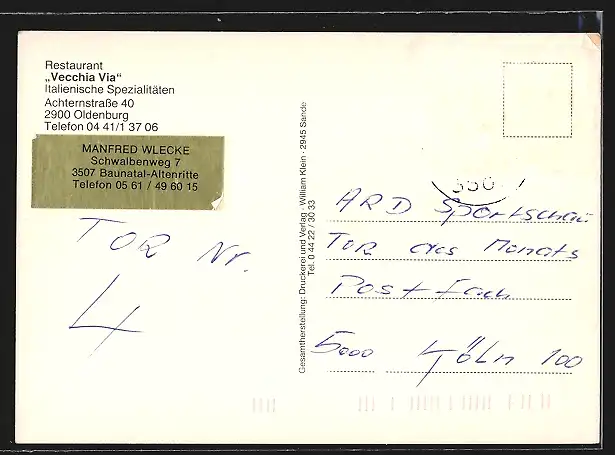 Restaurant
„Vecchia Via“
Italienische Spezialitäten
Achternstraße 40
2900 Oldenburg
Telefon 04 41/1 37 06
MANFRED WLECKE
Schwalbenweg 7
3507 Baunatal-Altenritte
Telefon 05 61 / 49 60 15
TOR Nr.
4
Gesamtherstellung: Druckerei und Verlag · William Klein · 2945 Sande
Tel. 0 44 22 / 30 33
ARD Sportschau
TOR des Monats
Postfach
5000 Köln 100